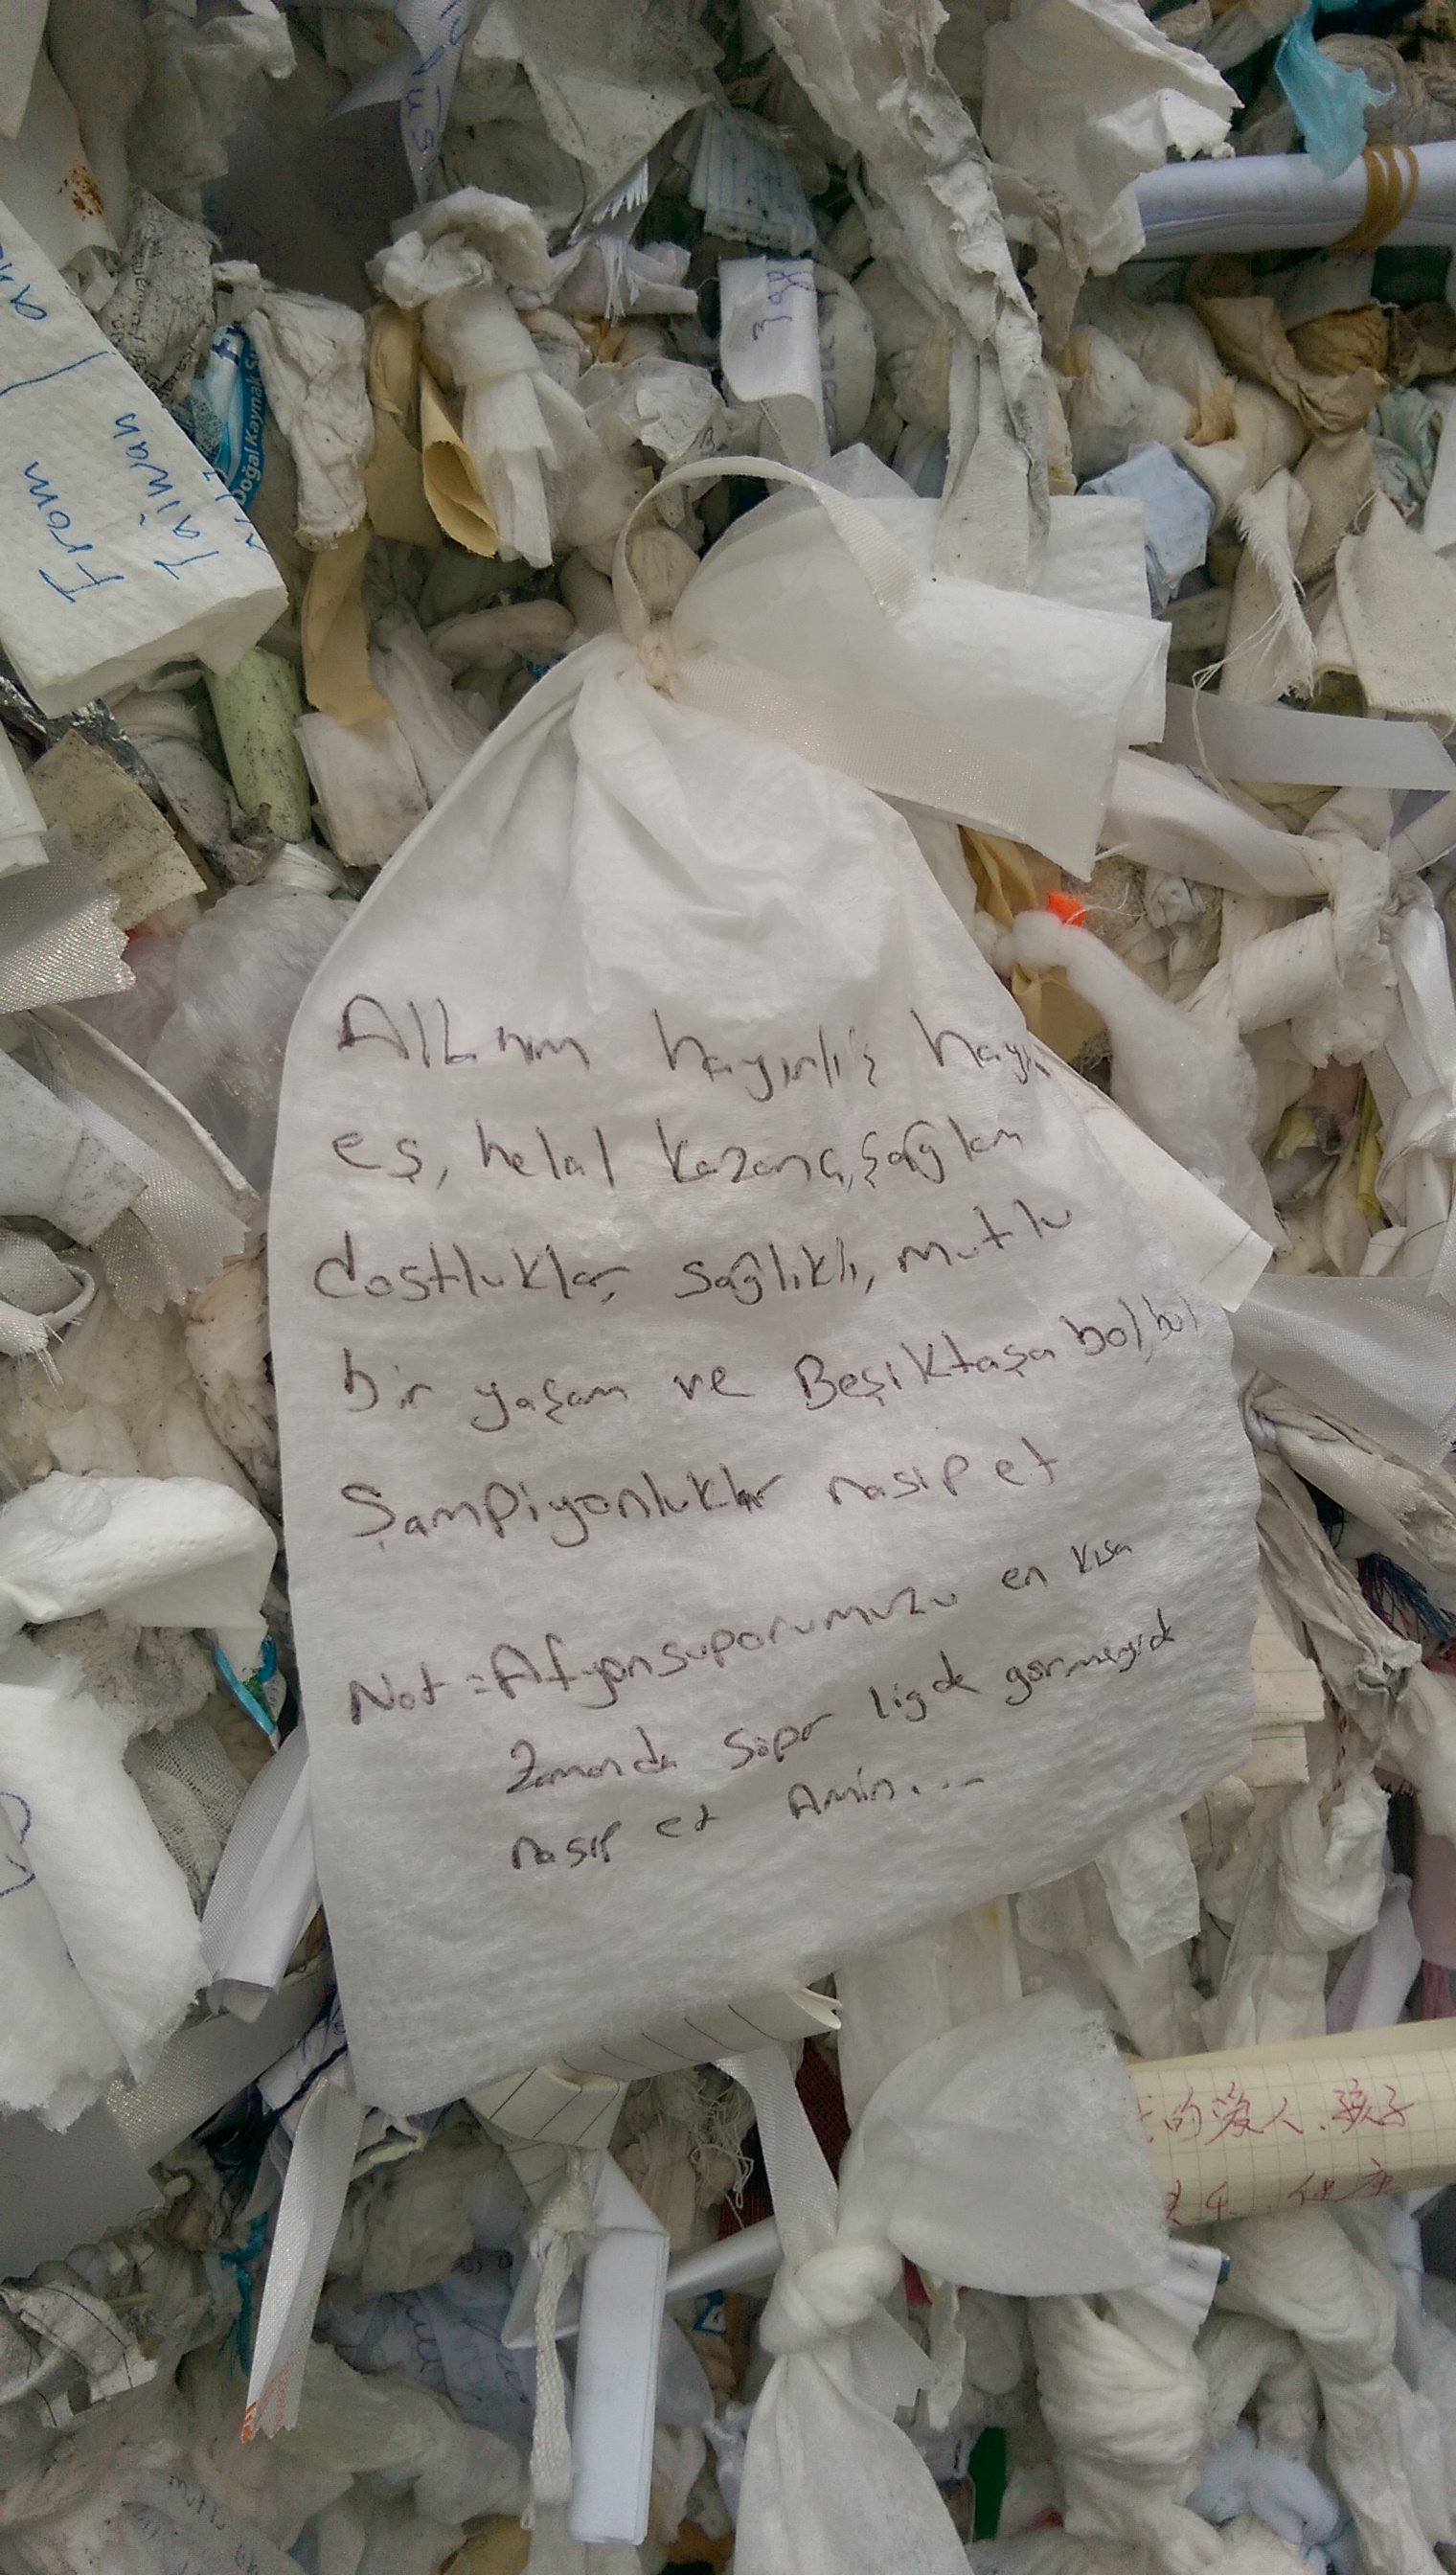 From
Taiwan
Doğal Kaynak
Allahım hayırlı iş hayırlı
eş, helal kazanç, sağlam
dostluklar, sağlıklı, mutlu
bir yaşam ve Beşiktaşa bol bol
Şampiyonluklar nasip et
Not = Afyonsuporumuzu en kısa
Zamanda süper ligde görmeyide
nasip et Amin...
的爱人、孩子